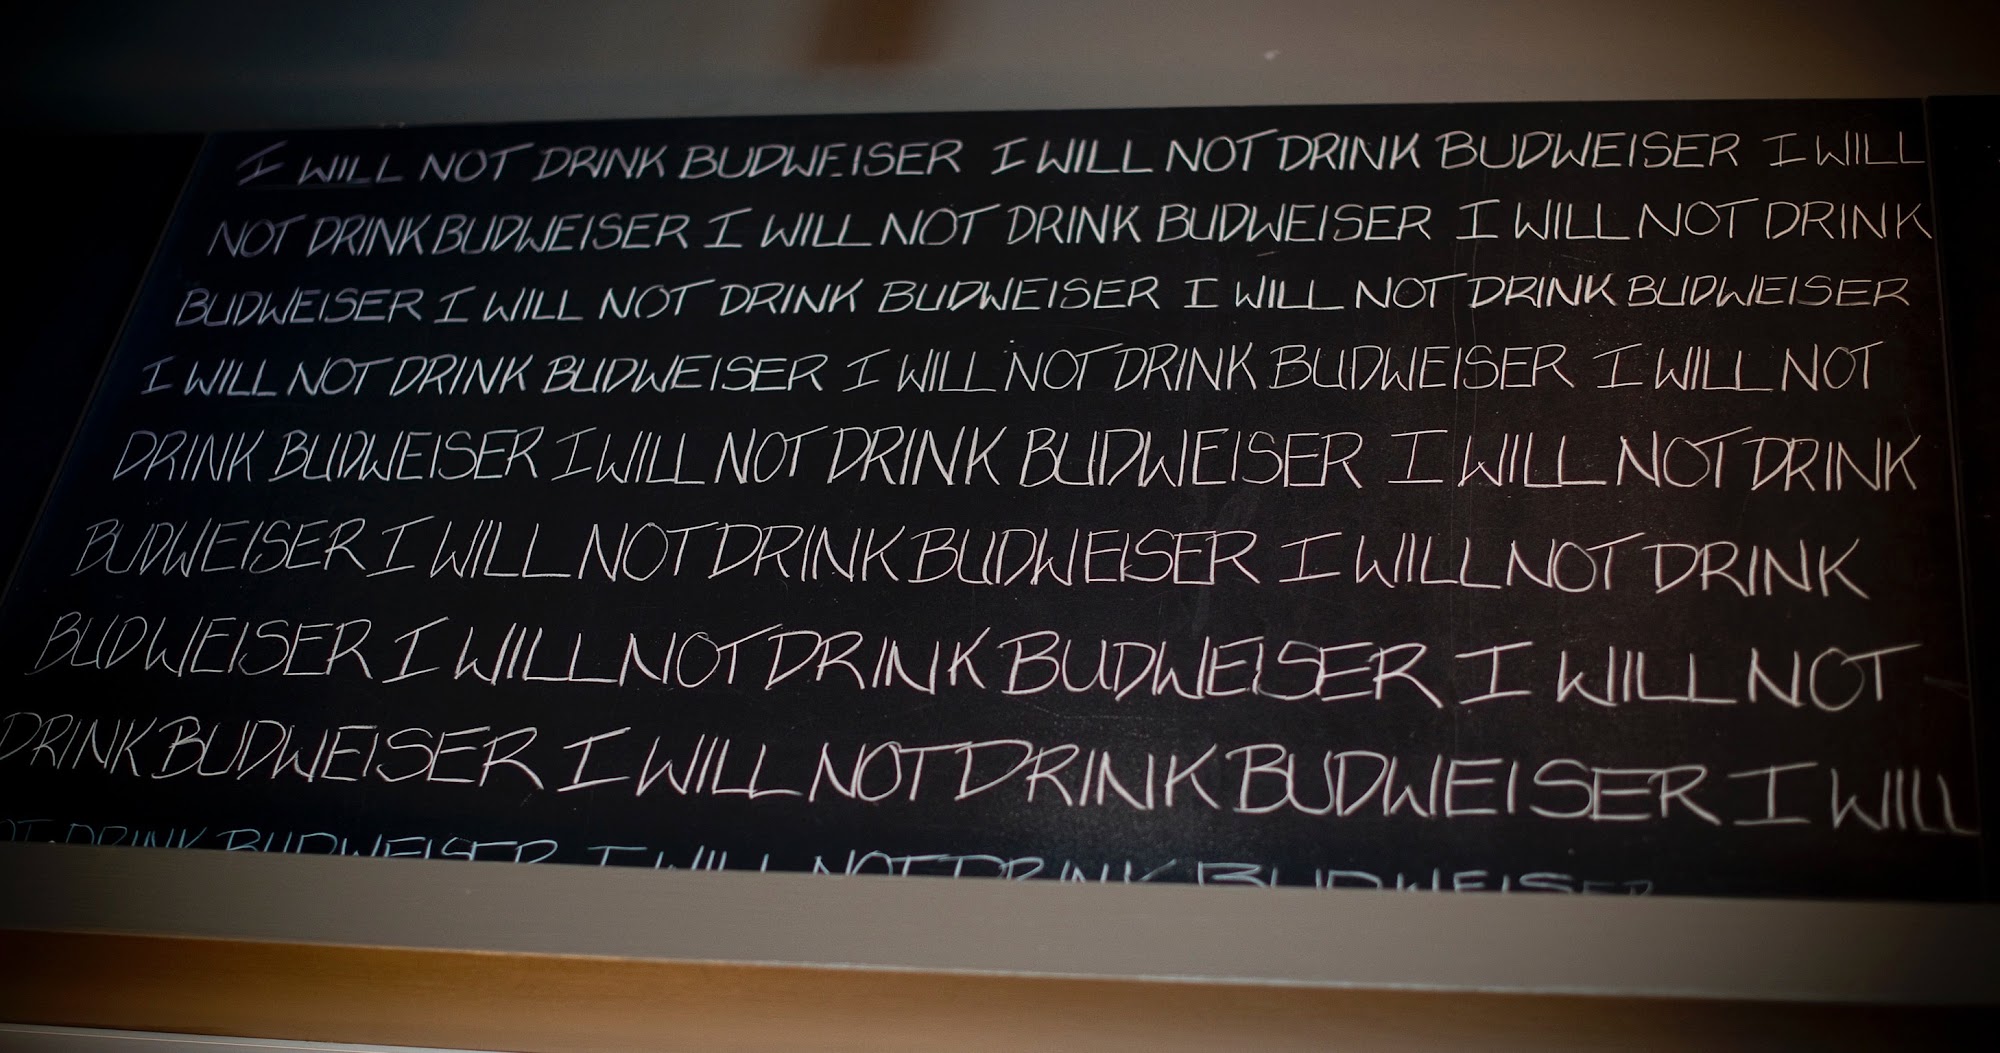 I WILL NOT DRINK BUDWEISER I WILL NOT DRINK BUDWEISER I WILL
NOT DRINK BUDWEISER I WILL NOT DRINK BUDWEISER I WILL NOT DRINK
BUDWEISER I WILL NOT DRINK BUDWEISER I WILL NOT DRINK BUDWEISER
I WILL NOT DRINK BUDWEISER I WILL NOT DRINK BUDWEISER I WILL NOT
DRINK BUDWEISER I WILL NOT DRINK BUDWEISER I WILL NOT DRINK
BUDWEISER I WILL NOT DRINK BUDWEISER I WILL NOT DRINK
BUDWEISER I WILL NOT DRINK BUDWEISER I WILL NOT
DRINK BUDWEISER I WILL NOT DRINK BUDWEISER I WILL
OT DRINK BUDWEISER I WILL NOT DRINK BUDWEISER